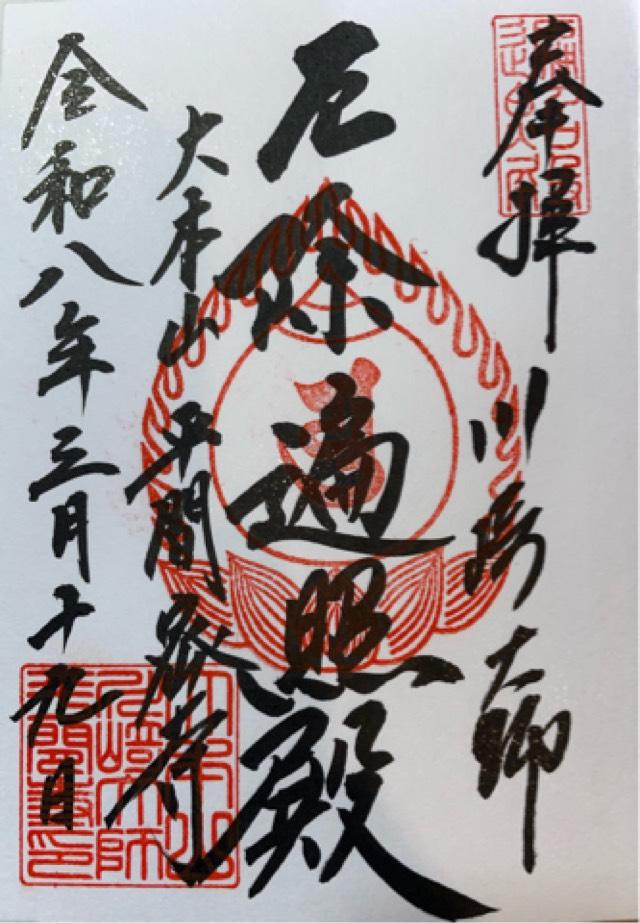 奉拝
川崎大師
厄除遍照殿
大本山 平間寺
令和八年三月十九日